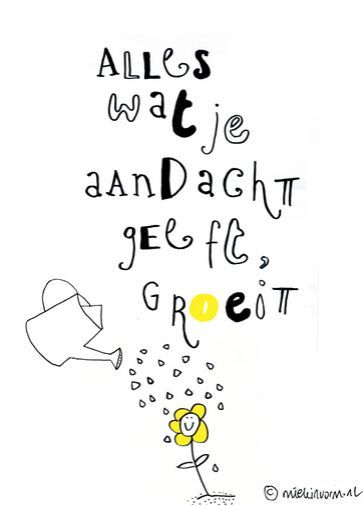 ALLes
wat je
aanDacht
geeft,
GRoeit
© miekinvorm.nl